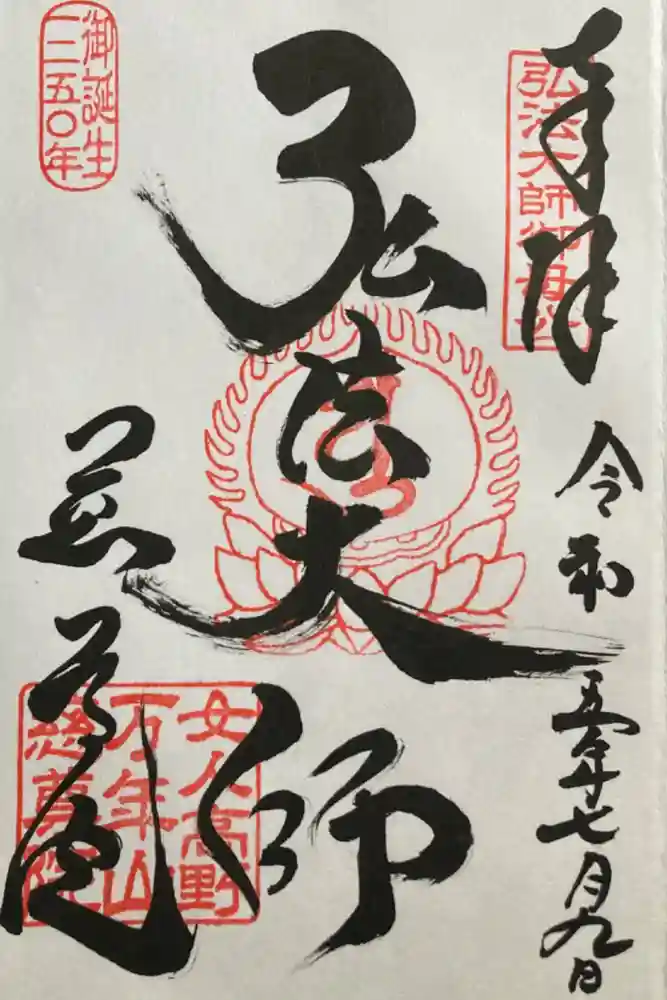 奉拝
弘法大師御母公
令和
五年七月九日
弘法大師
慈尊院
御誕生
一二五〇年
女人高野
万年山
慈尊院